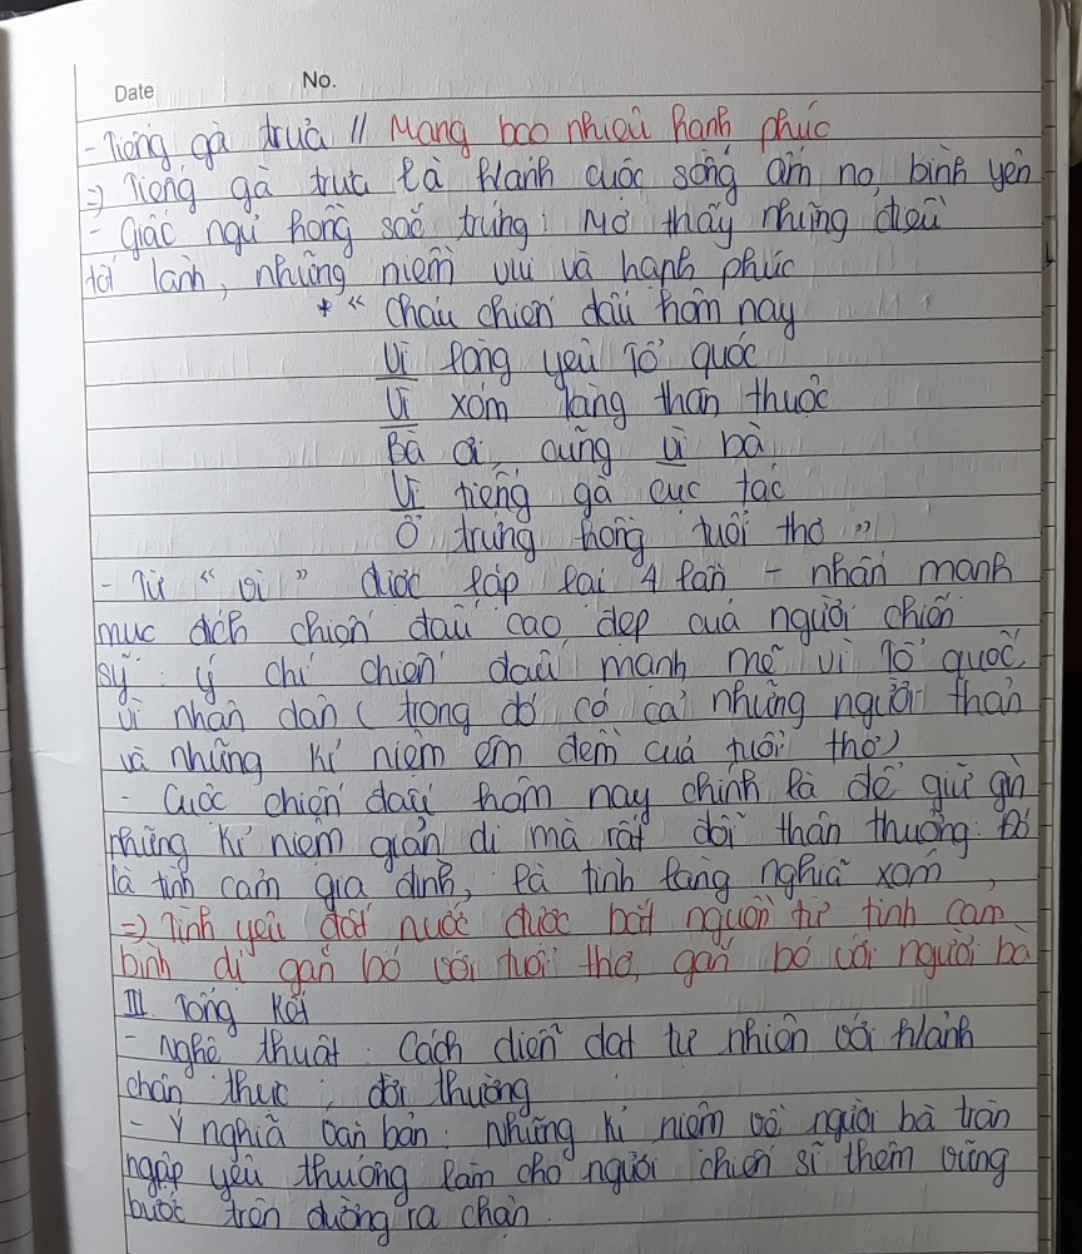 Date No.
- Tiếng gà trưa // Mang bao nhiêu hạnh phúc
=> Tiếng gà trưa là h/ảnh cuộc sống ấm no, bình yên
- Giấc ngủ hồng sắc trứng: Mơ thấy những điều
tốt lành, những niềm vui và hạnh phúc
* " Cháu chiến đấu hôm nay
Vì lòng yêu Tổ quốc
Vì xóm làng thân thuộc
Bà ơi, cũng vì bà
Vì tiếng gà cục tác
Ổ trứng hồng tuổi thơ "
- Từ " vì " được lặp lại 4 lần - nhấn mạnh
mục đích chiến đấu cao đẹp của người chiến
sỹ: ý chí chiến đấu mạnh mẽ vì Tổ quốc,
vì nhân dân ( trong đó có cả những người thân
và những kỉ niệm êm đềm của tuổi thơ)
- Cuộc chiến đấu hôm nay chính là để giữ gìn
những kỉ niệm giản dị mà rất đỗi thân thương. Đó
là tình cảm gia đình, là tình làng nghĩa xóm,
=> Tình yêu đất nước được bắt nguồn từ tình cảm
bình dị gắn bó với tuổi thơ, gắn bó với người bà
III. Tổng kết
- Nghệ thuật: Cách diễn đạt tự nhiên với h/ảnh
chân thực, đời thường
- Ý nghĩa văn bản: Những kỉ niệm về người bà tràn
ngập yêu thương làm cho người chiến sĩ thêm vững
bước trên đường ra chận.